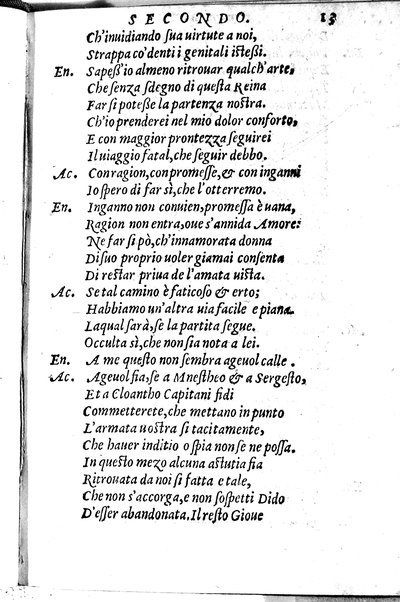 SECONDO. 13
Ch'inuidiando ſua uirtute a noi,
Strappa co' denti i genitali iſteßi.
En. Sapeß'io almeno ritrouar qualch'arte,
Che ſenza ſdegno di queſta Reina
Far ſi poteße la partenza noſtra.
Ch'io prenderei nel mio dolor conforto,
E con maggior prontezza ſeguirei
Il uiaggio fatal, che ſeguir debbo.
Ac. Con ragion, con promeſſe, & con inganni
Io ſpero di far sì, che l'otterremo.
En. Inganno non conuien, promeſſa è uana,
Ragion non entra, oue s'annida Amore:
Ne far ſi pò, ch'innamorata donna
Di ſuo proprio uoler giamai conſenta
Di reſtar priua de l'amata uiſta.
Ac. Se tal camino è faticoſo & erto;
Habbiamo un'altra uia facile e piana.
Laqual ſarà, ſe la partita ſegue.
Occulta sì, che non ſia nota a lei.
En. A me queſto non ſembra ageuol calle.
Ac. Ageuol fia, ſe a Mneſtheo & a Sergeſto,
Et a Cloantho Capitani fidi
Commetterete, che mettano in punto
L'armata uoſtra ſi tacitamente,
Che hauer inditio o ſpia non ſe ne poſſa.
In queſto mezo alcuna aſtutia fia
Ritrouata da noi ſi fatta e tale,
Che non s'accorga, e non ſoſpetti Dido
D'eſſer abandonata. Il reſto Gioue